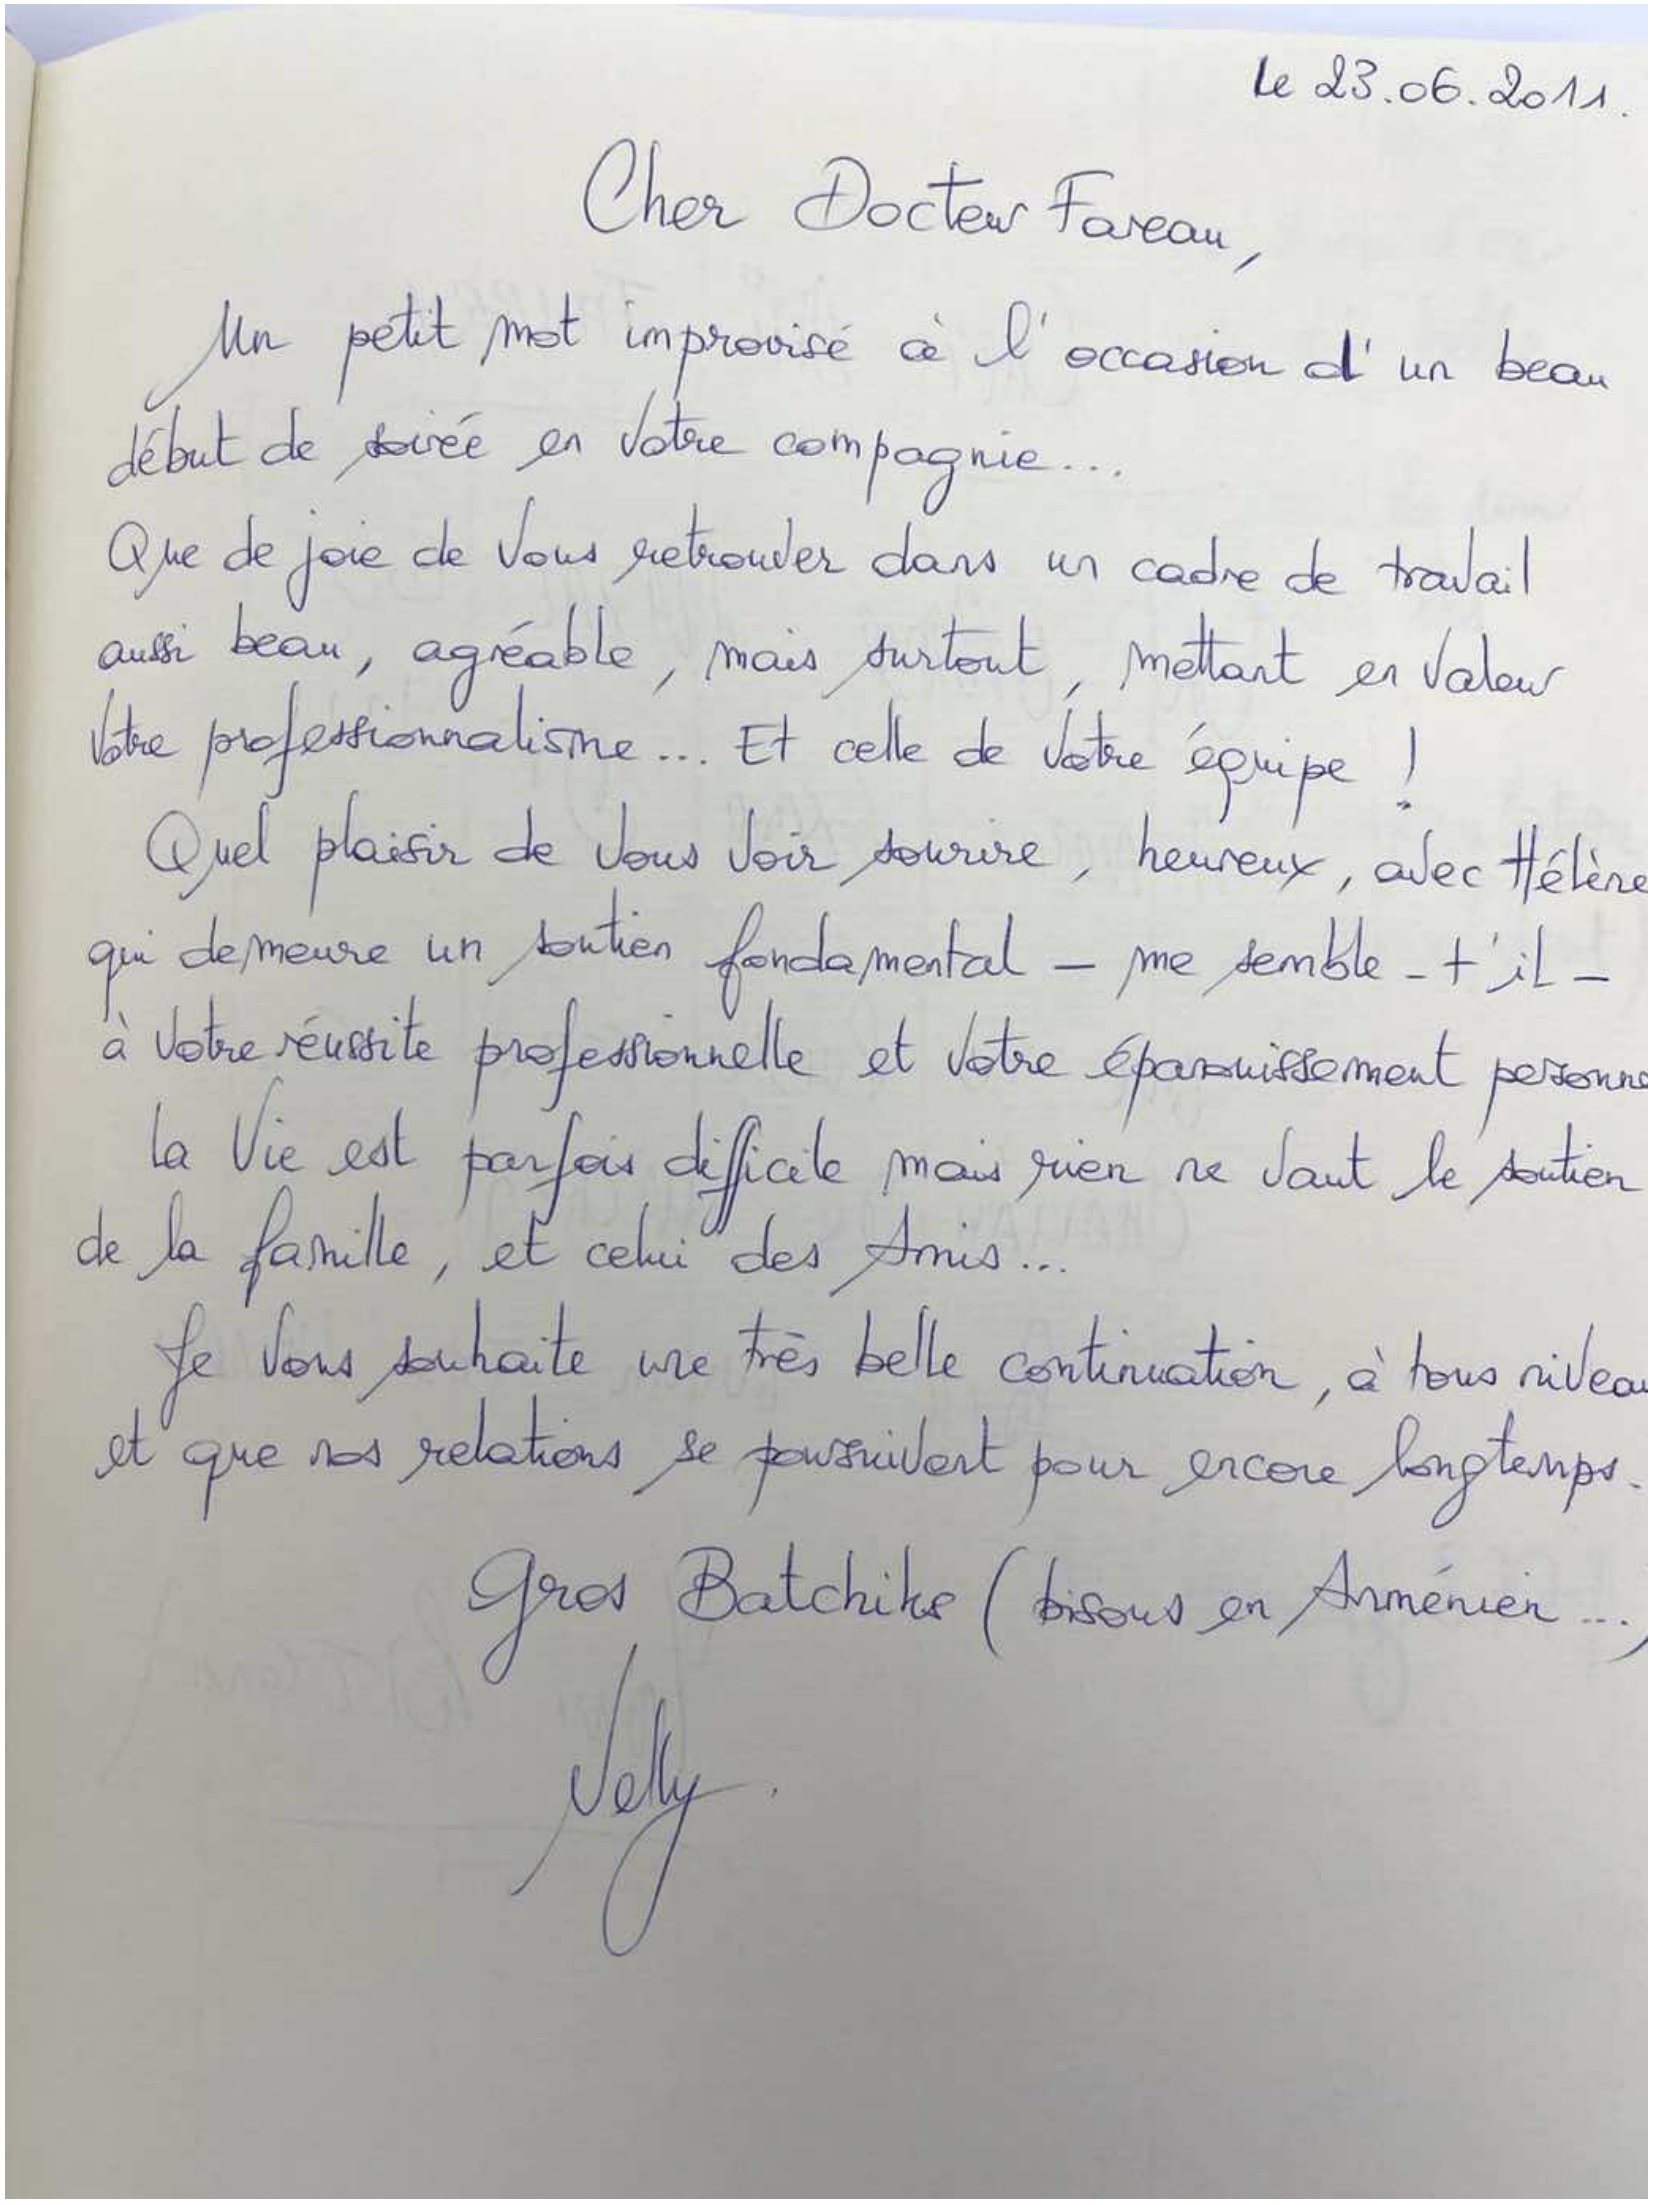 Le 23.06.2011.
Cher Docteur Faveau,
Un petit mot improvisé à l'occasion d'un beau
début de soirée en Votre compagnie...
Que de joie de Vous retrouver dans un cadre de travail
aussi beau, agréable, mais surtout, mettant en Valeur
Votre professionnalisme... Et celle de Votre équipe !
Quel plaisir de Vous Voir sourire, heureux, avec Hélène
qui demeure un soutien fondamental - me semble-t'il -
à Votre réussite professionnelle et Votre épanouissement personne
La Vie est parfois difficile mais rien ne Vaut le soutien
de la famille, et celui des Amis...
Je Vous souhaite une très belle continuation, à tous niveau
et que nos relations se poursuivent pour encore longtemps.
Gros Batchiks (bisous en Arménien...)
Nelly.